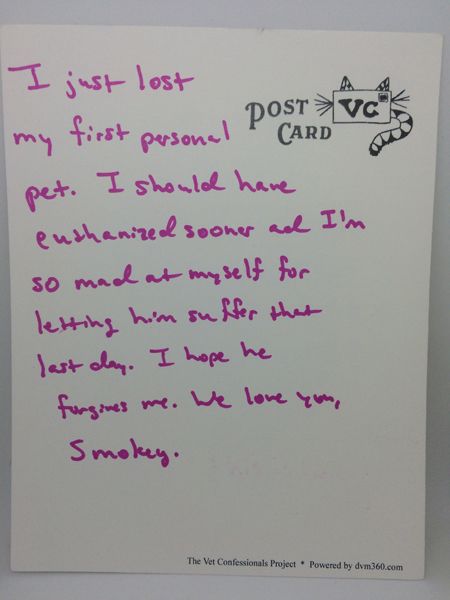 I just lost
my first personal
pet. I should have
euthanized sooner ad I'm
so mad at myself for
letting him suffer that
last day. I hope he
forgives me. We love you,
Smokey.
POST
CARD
VC
The Vet Confessionals Project * Powered by dvm360.com